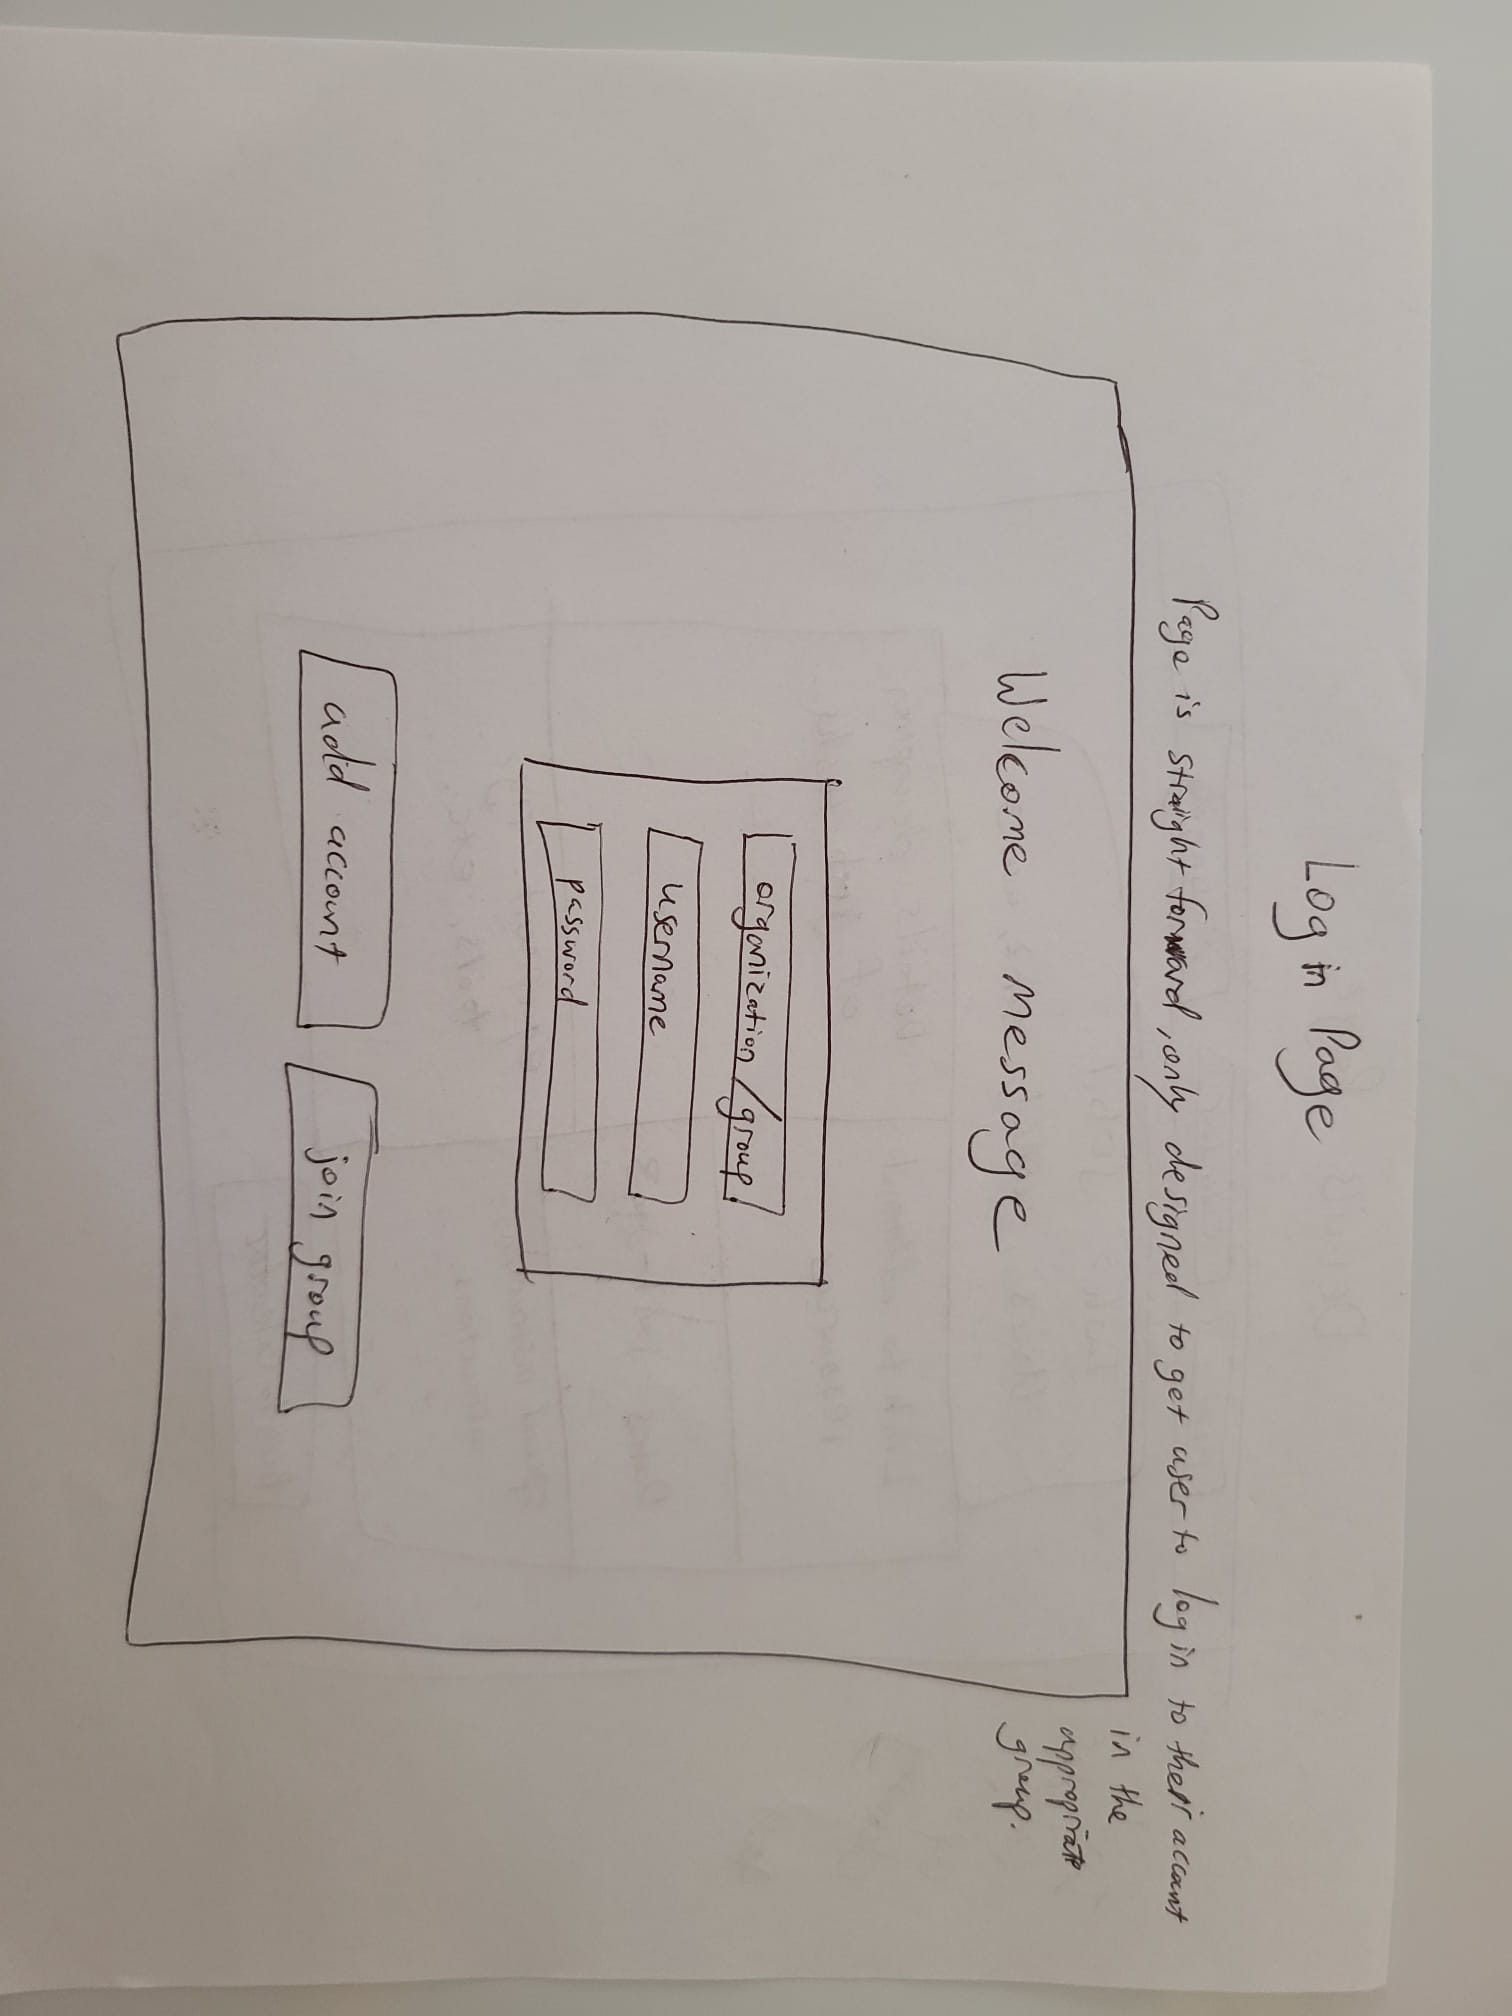 Log in Page
Page is straight forward, only designed to get user to log in to their account
in the
appropriate
group.
Welcome message
organization/group
username
password
add account
join group